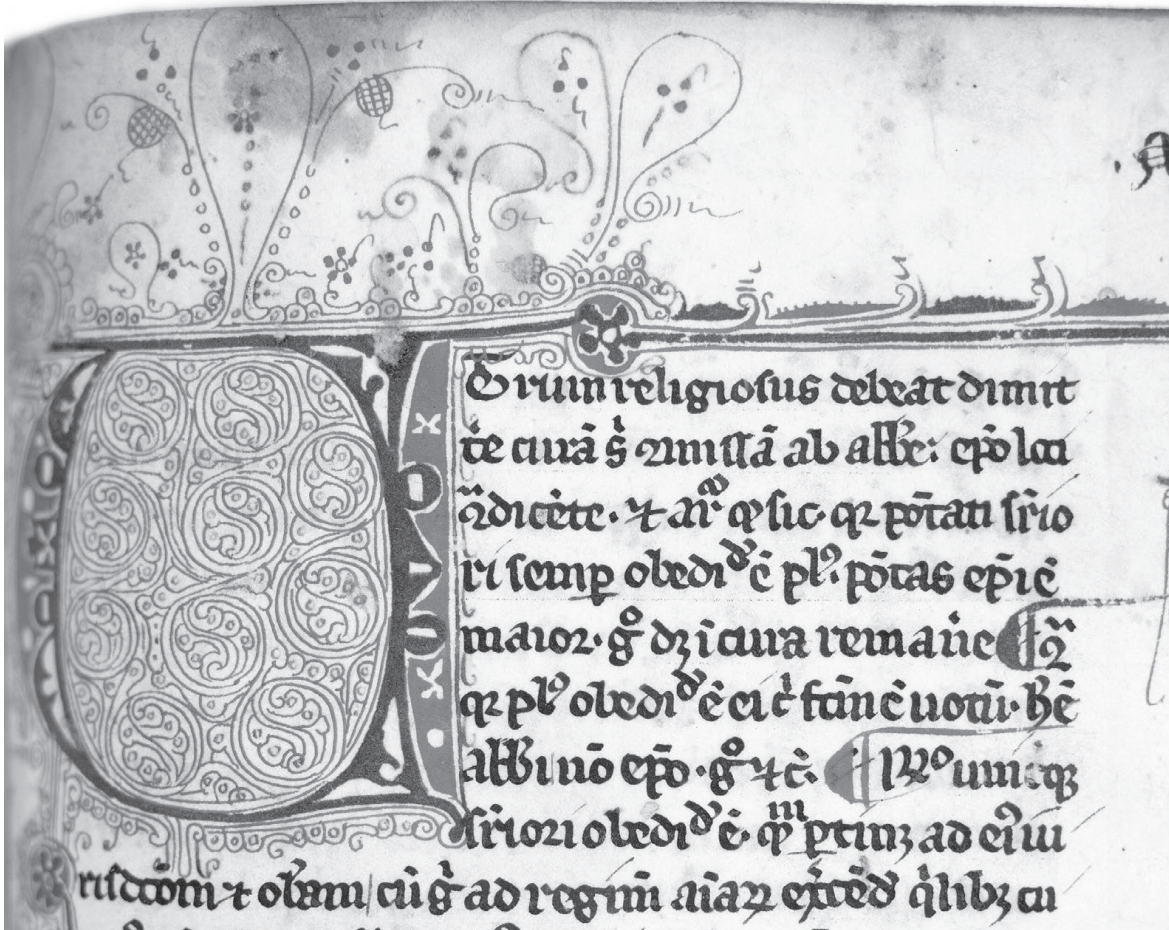 Utrum religiosus debeat dimit
te̾ curā s̾ 9missā ab abbe: ep̄o loci
9̾dicēte · ⁊ ar̾ ꝙ sic · qꝛ pōtati sr̄io
ri semꝑ obediᵈᵘ ē plꝰ · pōtas ep̄i ē
maior · gͦ dꝫ ī cura remane̾ ¶ 9ᵃ
qꝛ plꝰ obediᵈᵘ ē ei cͥ fcm̄ ē uotū · hē
abbi nō ep̄o · gͦ ⁊ c̾ · ¶ Rͦ unicuiqꝫ
sr̄iori obediᵈᵘ ē · ꝙᵐ ꝑtinꝫ ad eiꝰ iu
risdcōm ⁊ ob̄am cū gͦ ad regim̄ aīaꝝ exced̄ qͥlibꝫ cu